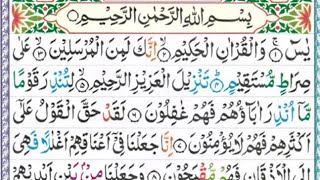 بِسْمِ اللّٰهِ الرَّحْمٰنِ الرَّحِیْمِ
یٰسٓ ۝۱ وَ الْقُرْاٰنِ الْحَكِیْمِ ۝۲ اِنَّكَ لَمِنَ الْمُرْسَلِیْنَ ۝۳ عَلٰى
صِرَاطٍ مُّسْتَقِیْمٍ ۝۴ تَنْزِیْلَ الْعَزِیْزِ الرَّحِیْمِ ۝۵ لِتُنْذِرَ قَوْمًا مَّاۤ
اُنْذِرَ اٰبَآؤُهُمْ فَهُمْ غٰفِلُوْنَ ۝۶ لَقَدْ حَقَّ الْقَوْلُ عَلٰۤى
اَكْثَرِهِمْ فَهُمْ لَا یُؤْمِنُوْنَ ۝۷ اِنَّا جَعَلْنَا فِیْۤ اَعْنَاقِهِمْ اَغْلٰلًا فَهِیَ
اِلَى الْاَذْقَانِ فَهُمْ مُّقْمَحُوْنَ ۝۸ وَ جَعَلْنَا مِنْۢ بَیْنِ اَیْدِیْهِمْ